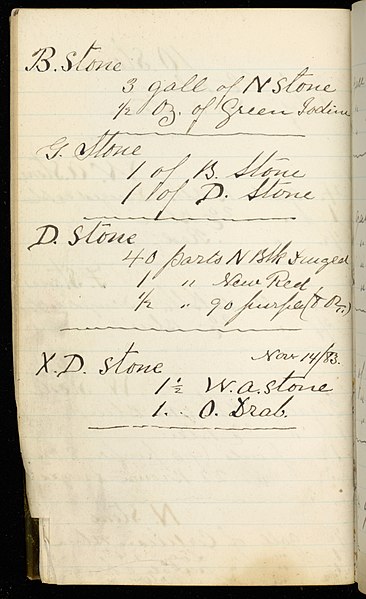 B. Stone
3 gall of N Stone
½ Oz. of Green Iodine
G. Stone
1 of B. Stone
1 of D. Stone
D. Stone
40 parts N Blk
1 " New Red
½ " 90 (8 Oz.)
X.D. Stone Nov 14/83.
1 ½ W.a. stone
1 . . O. Drab.